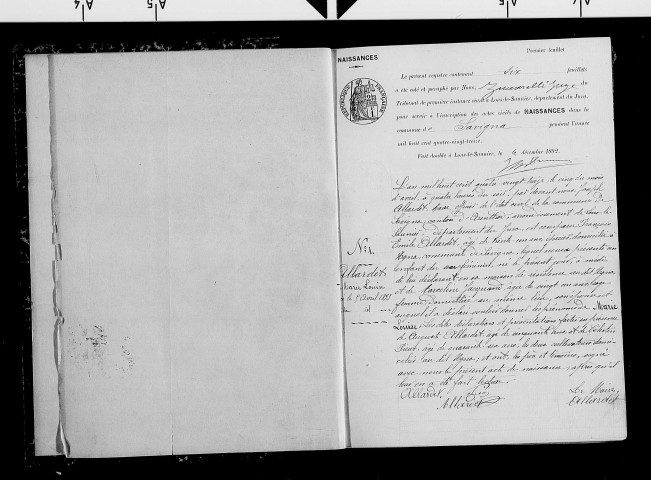 A 4
A 5
NAISSANCES
Premier feuillet
Le présent registre contenant six feuillets
a été coté et paraphé par Nous, Juge du
Tribunal de première instance séant à Lons-le-Saunier, département du Jura,
pour servir à l'inscription des actes civils de NAISSANCES dans la
commune d e Savigna pendant l'année
mil huit cent quatre-vingt-treize.
Fait double à Lons-le-Saunier, le 6 décembre 1892.
RÉPUBLIQUE FRANÇAISE
L'an mil huit cent quatre vingt treize le cinq du mois
d'avril à quatre heures du soir, par devant nous Joseph
Allardet Maire officier de l'état civil de la commune de
Savigna, canton d'Arinthod, arrondissement de Lons le
Saunier, département du Jura, est comparu François
Emile Allardet, âgé de trente un ans, domicilié à
commune de Savigna, lequel nous a présenté un
enfant du sexe féminin, né le présent jour, à midi
de lui déclarant en sa maison de résidence au dit
et de Marceline Jacquand, âgée de vingt un ans, sa
femme domiciliée au même lieu, son épouse et
auquel il a déclaré vouloir donner les prénoms de Marie
Louise. Les dites déclaration et présentation faites en présence
de Allardet, âgé de cinquante ans et de
âgé de quarante ans, les deux cultivateurs domi-
ciliés au dit et ont, les père et témoins, signé
avec nous le présent acte de naissance, après qu'il
leur en a été fait lecture
N° 1.
Allardet
Marie Louise
le 5 Avril 1893
Allardet
Allardet
Le Maire,
Allardet